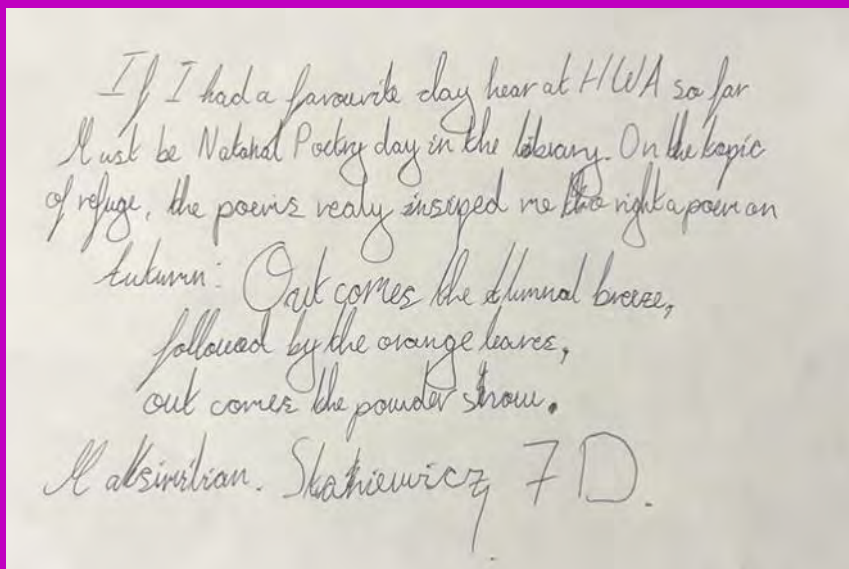 If I had a favourite day hear at HWA so far
Must be National Poetry day in the library. On the topic
of refuge, the poems realy insiped me two right a poem on
Autumn: Out comes the
breeze,
followed by the orange leaves,
out comes the powder snow.
Maksimilian. 7D.